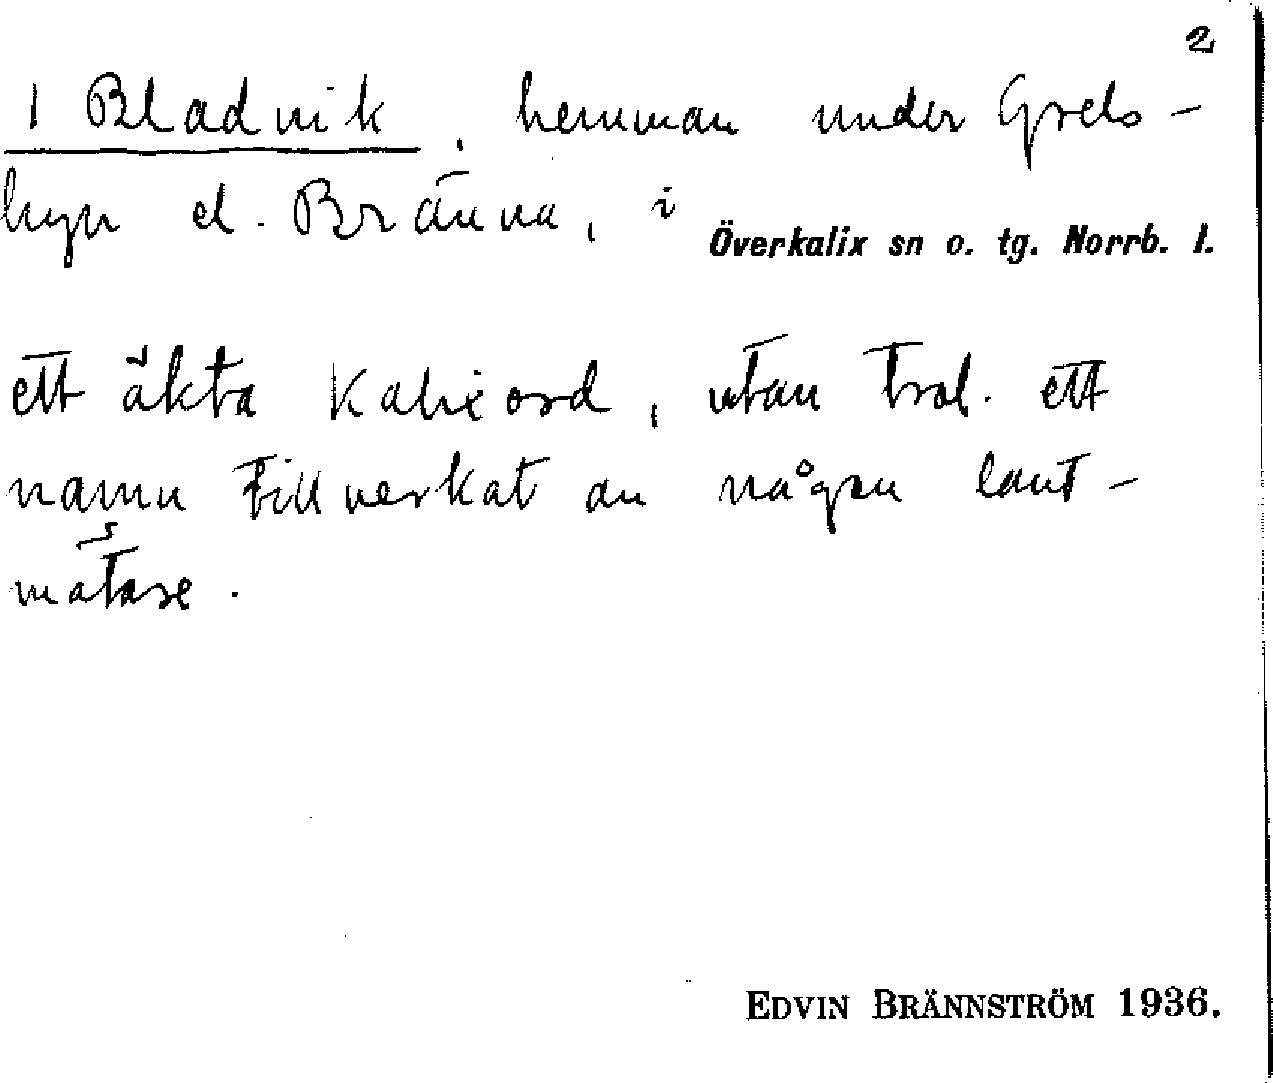 2
1 Bladvik, hemman under Grels-
byn el. Bränna, i
Överkalix sn o. tg. Norrb. l.
ett äkta Kalixord, utan trol. ett
namn tillverkat av någon lant-
mätare.
EDVIN BRÄNNSTRÖM 1936.